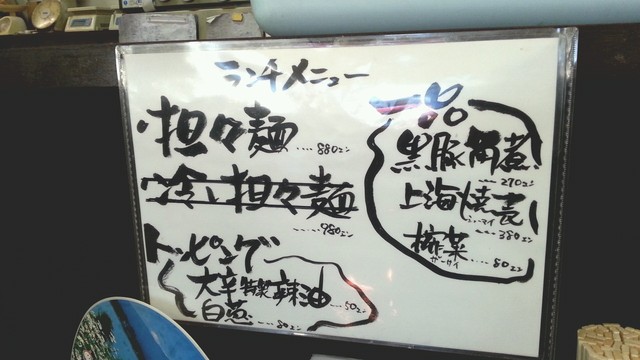 ランチメニュー
担々麺
....880エン
冷し担々麺
......980エン
トッピング
大辛特製辣油
....50エン
白葱
...80エン
一品
黒豚角煮
....270エン
上海焼売
シューマイ
...380エン
搾菜
ザーサイ
...80エン